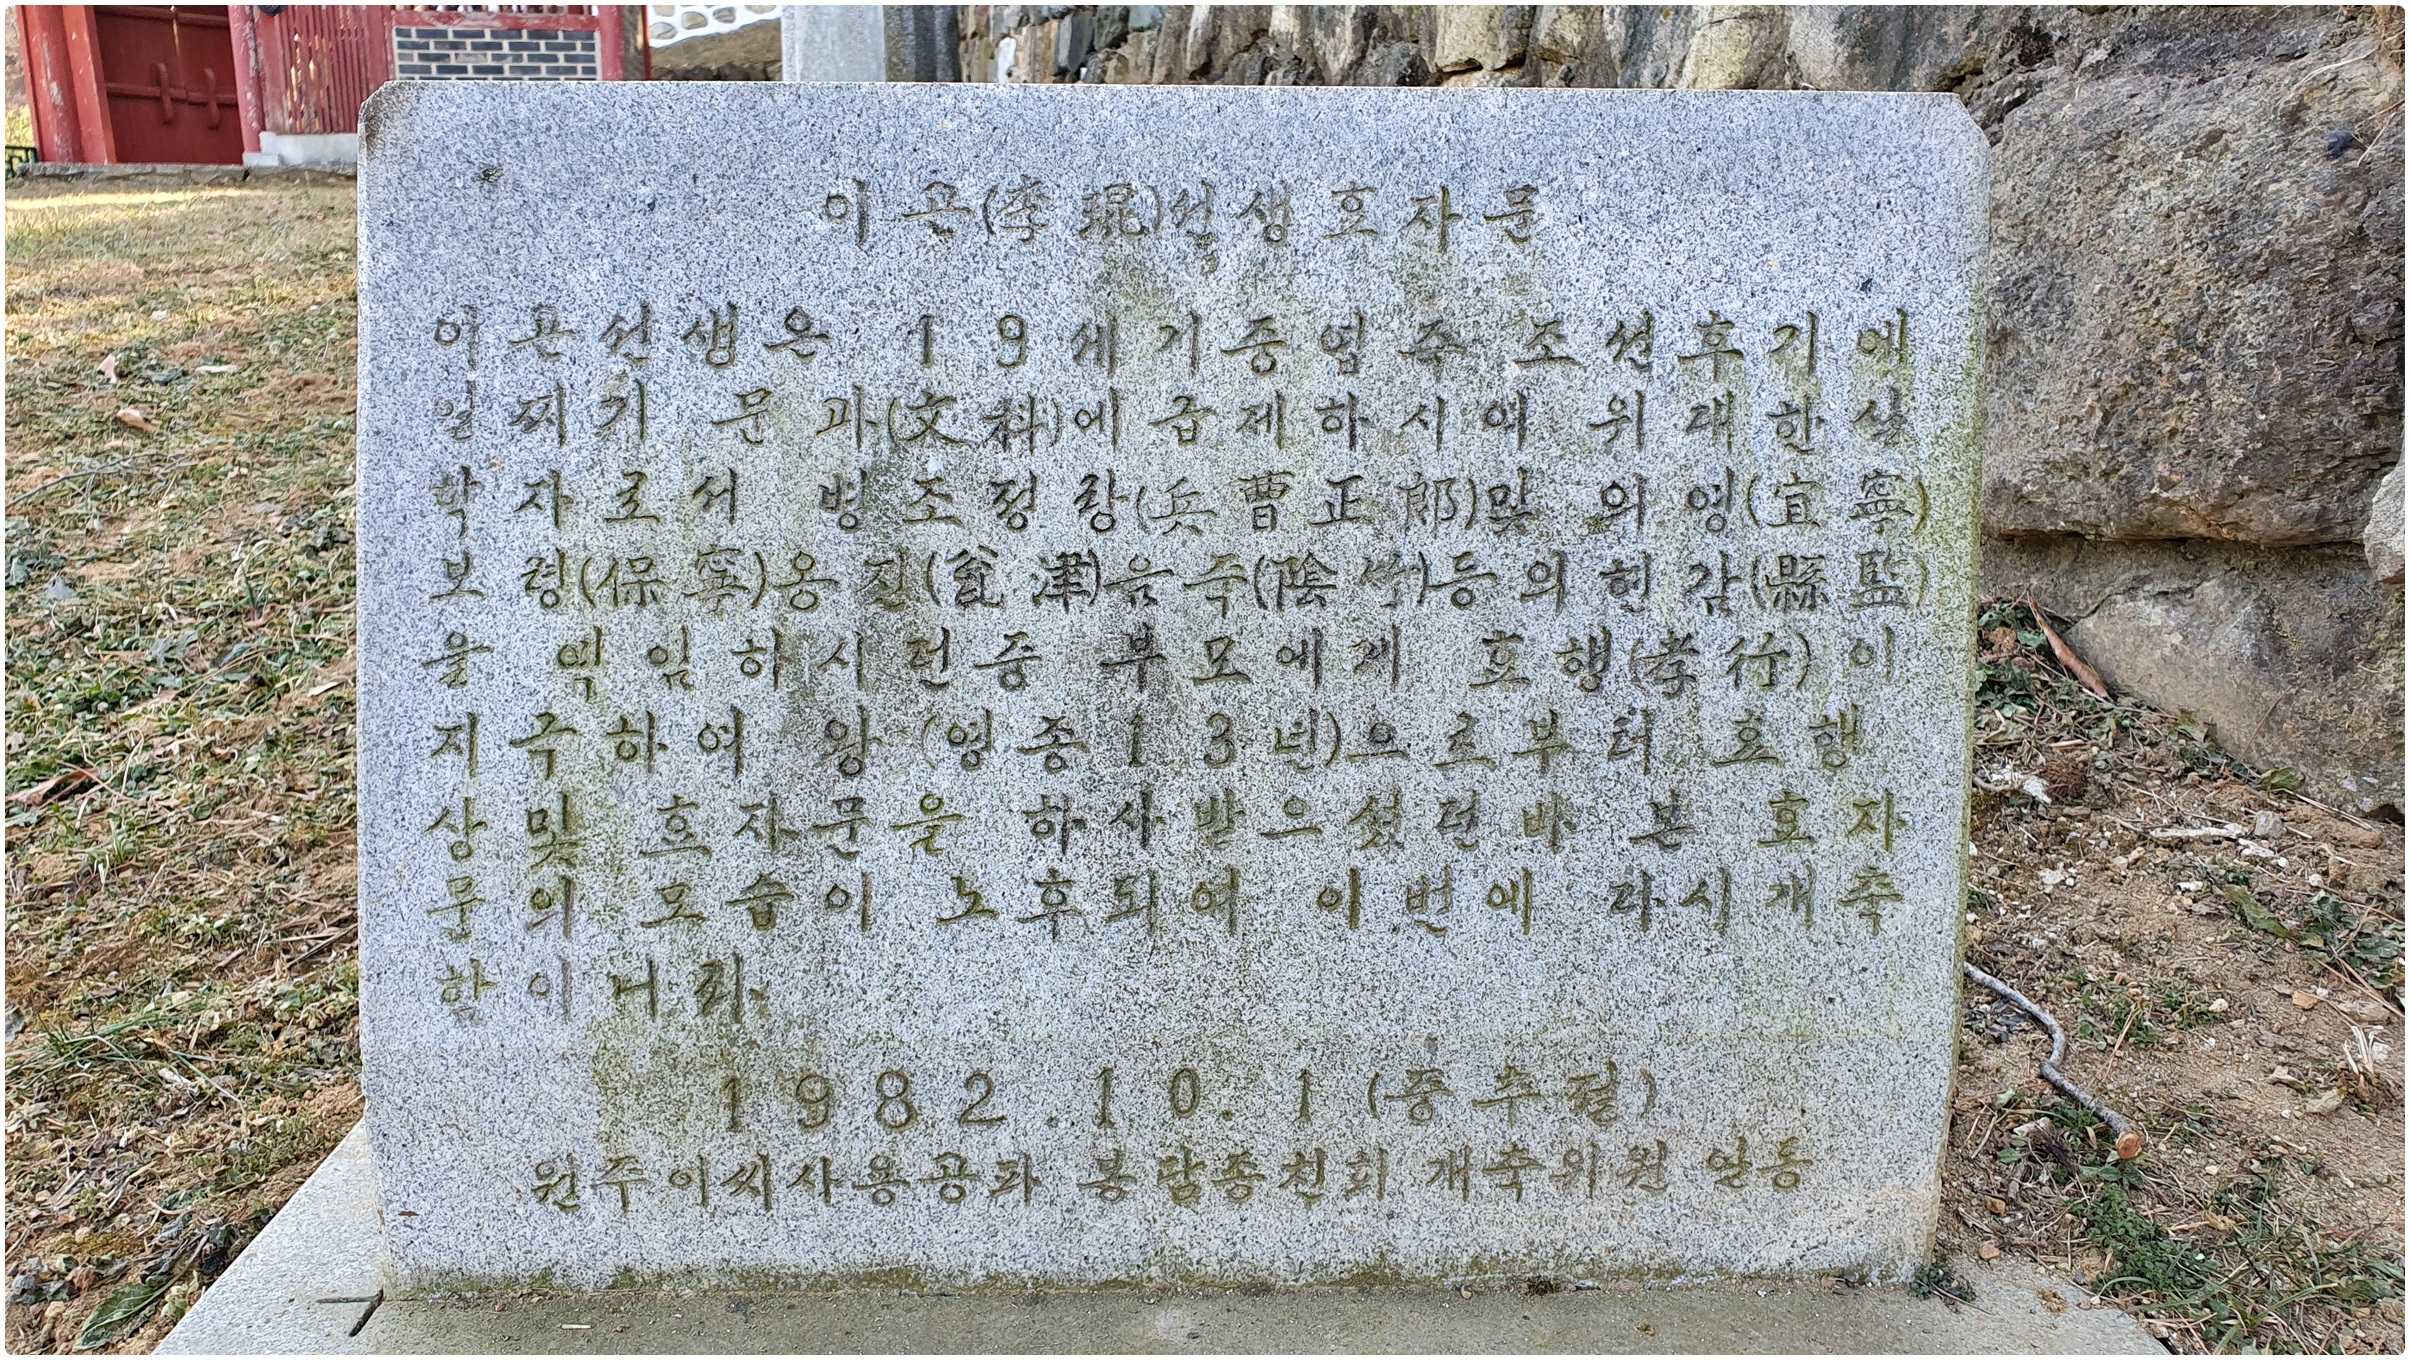 이 곤(李 琨)선생 효자문
이곤선생은 19세기종엽주 조선후기에
일찌기 문과(文科)에급제하시여 위대한실
학자로서 병조정랑(兵曹正郎)및 의영(宜寧)
보령(保寧)옹진(瓮津)음죽(陰竹)등의현감(縣監)
을 역임하시던중 부모에게 효행(孝行)이
지극하여 왕(영종13년)으로부터 효행
상및 효자문을 하사받으셨던바 본 효자
문의 모습이 노후되여 이번에 다시개축
함이니라.
1982.10.1(중추절)
원주이씨사용공파 봉담종친회 개축위원 일동